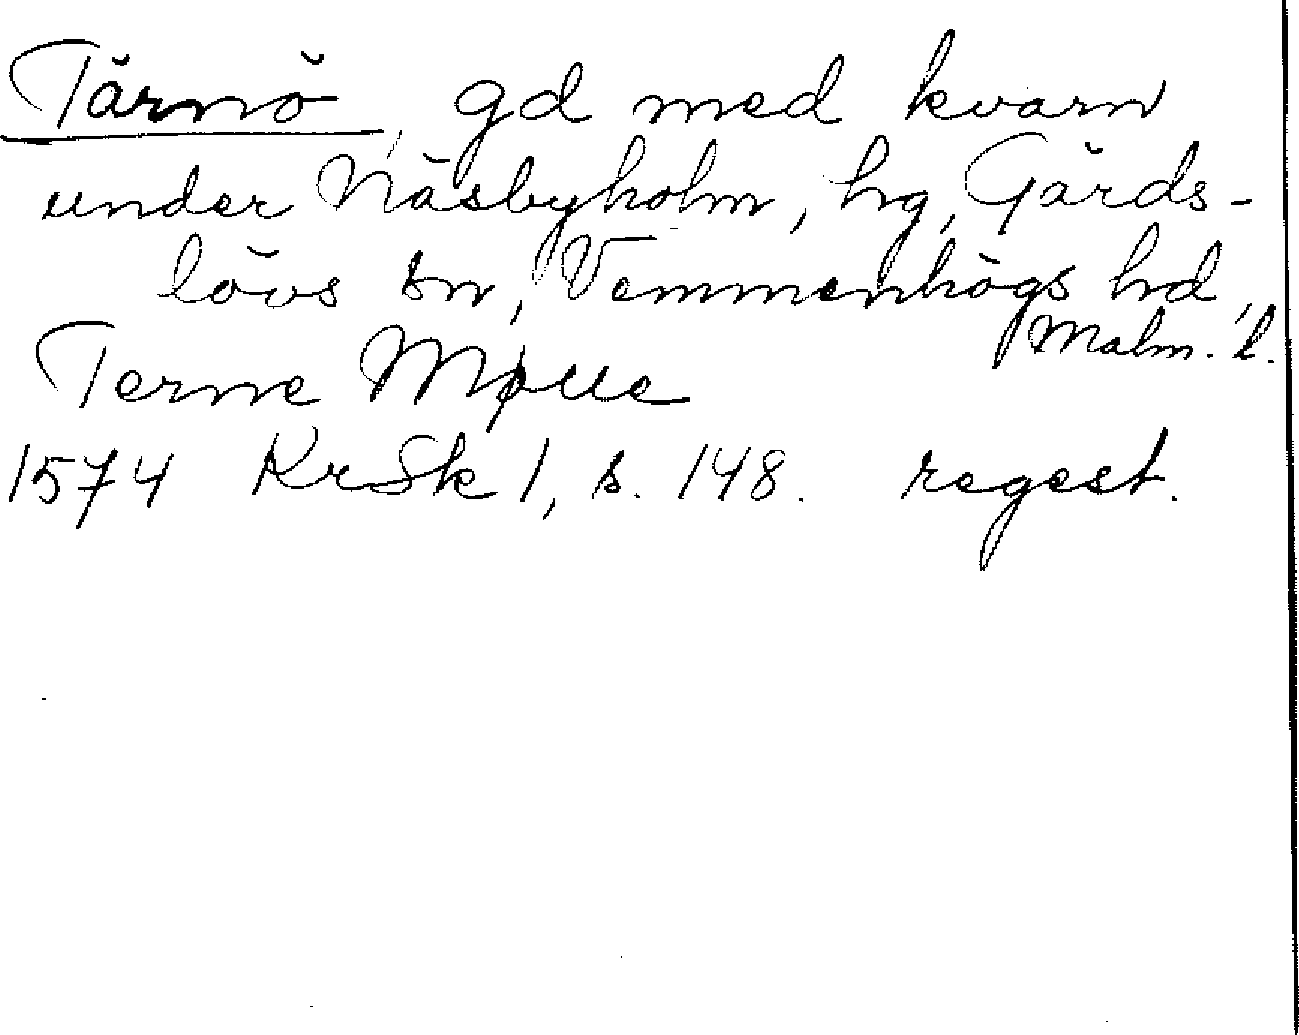 Tärnö, gd med kvarn
under Näsbyholm, hg, Gärds-
lövs sn, Vemmenhögs hd,
Malm. l.
Terne Mølle
1574 KrSk 1, s. 148. regest.